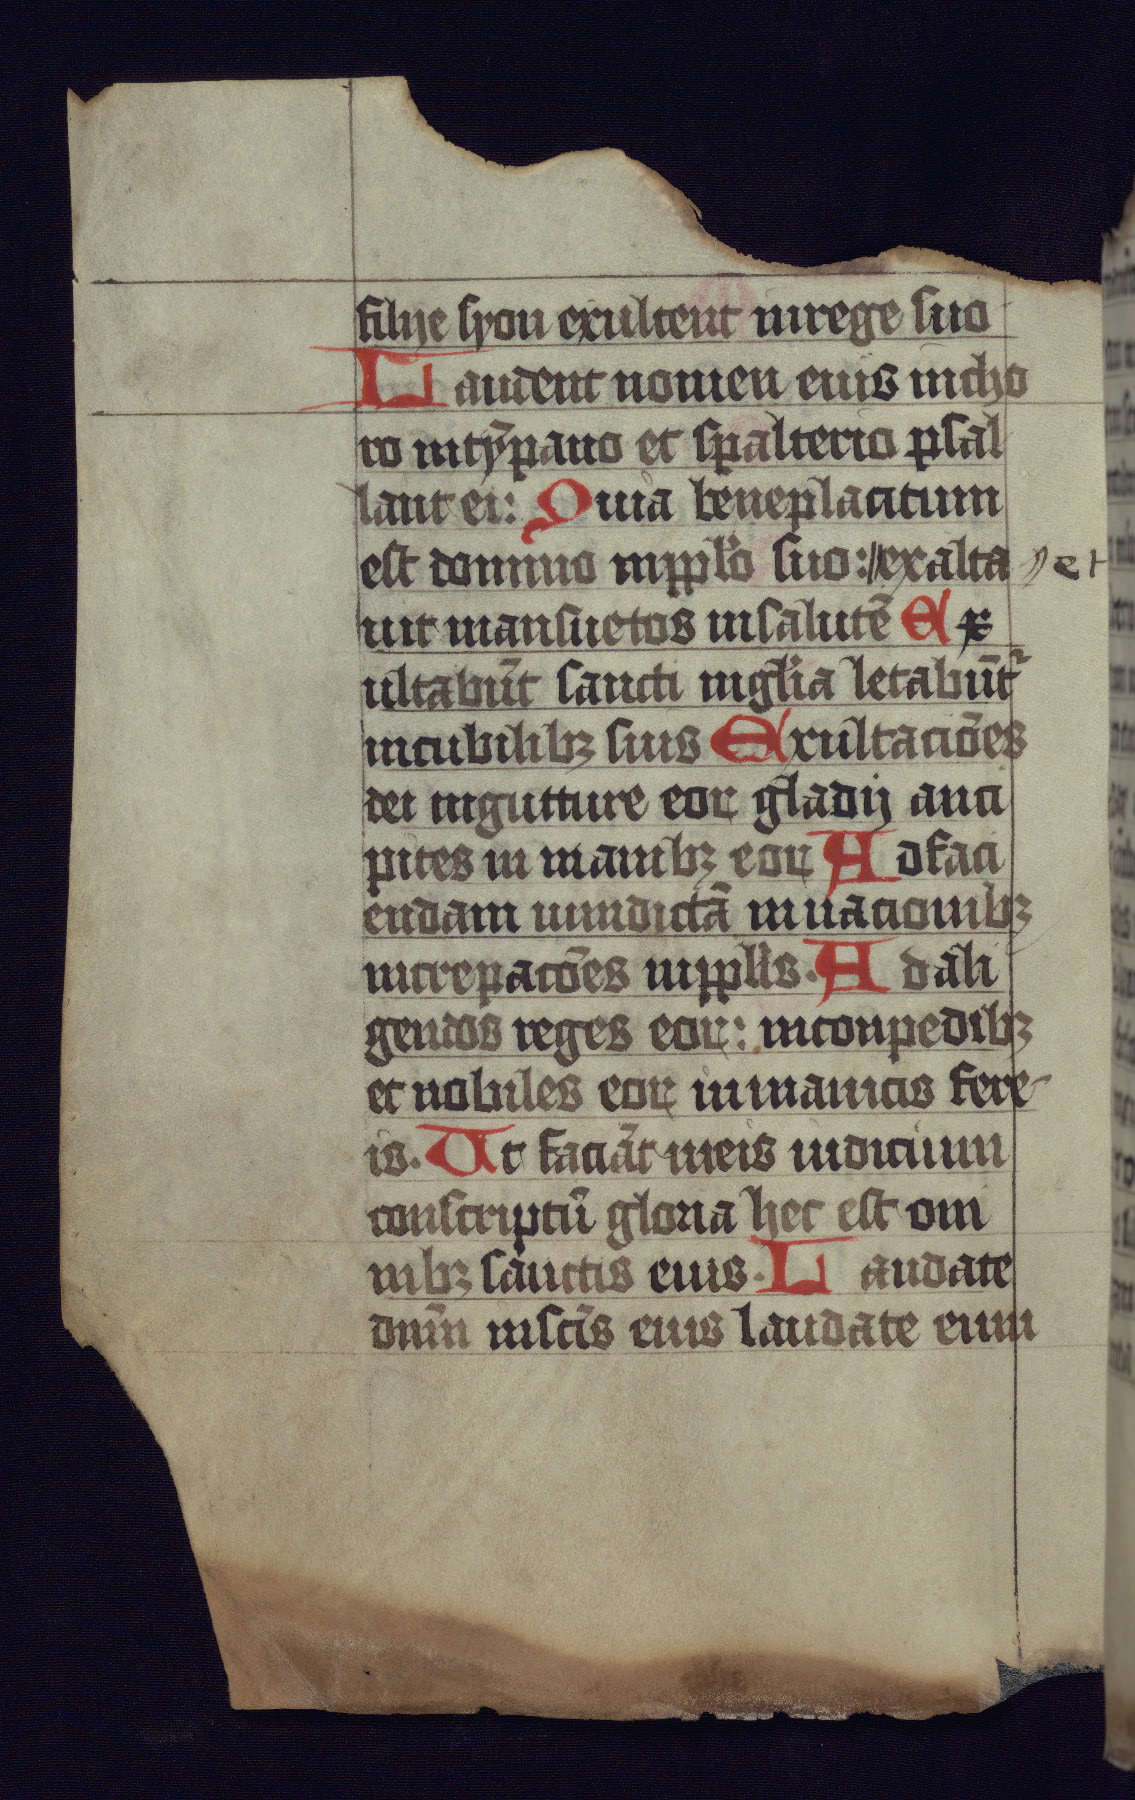 filije syon exultent in rege suo
Laudent nomen eius in cho
ro in ty̅pano et spalterio psal
lant ei: Quia beneplacitum
est domino in pplo̅ suo: // exalta // et
uit mansuetos in salute̅ Ex
ultabu̅t sancti in gl̅ia letabu̅tr
in cubilibꝫ suis Exultacio̅es
dei in gutture eoꝝ gladij anci
pites in manibꝫ eoꝝ Ad faci
endam uindicta̅ in nacionibꝫ
increpaco̅es in ppl̅is. Ad ali
gendos reges eoꝝ: in conpedibꝫ
et nobiles eoꝝ in manicis fere
is. Ut facia̅t in eis iudicium
conscriptu̅ gloria hec est om
nibꝫ sanctis eius. Laudate
dnm̅ in sc̅is eius laudate eum